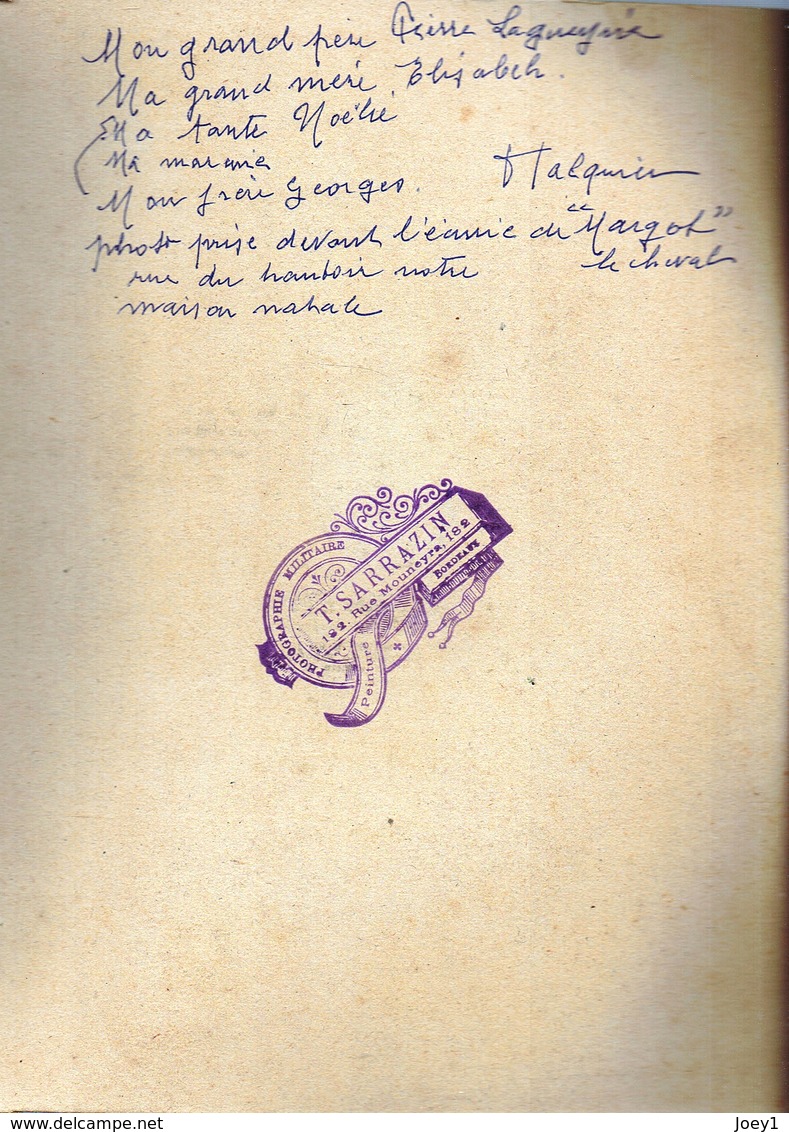 Mon grand père Pierre
Ma grand mère Elisabeth.
Ma tante Noélie
Ma marraine
Mon frère Georges.
photo prise devant l'écurie de "Margot"
le cheval
rue du hautoir notre
maison natale
PHOTOGRAPHIE MILITAIRE
T. SARRAZIN
182, Rue Mouneyra, 182
BORDEAUX
Peinture
delcampe.net
Joey1